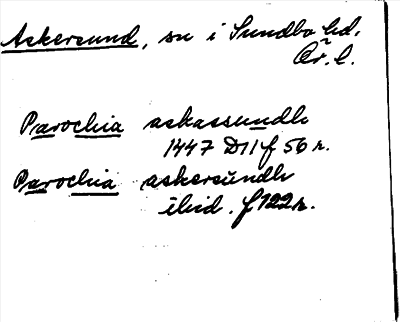 Askersund, sn i Sundbo hd.
Ör. l.
Parochia askassundh
1447 D11 f 56 r.
Parochia askersundh
ibid. f 122 r.